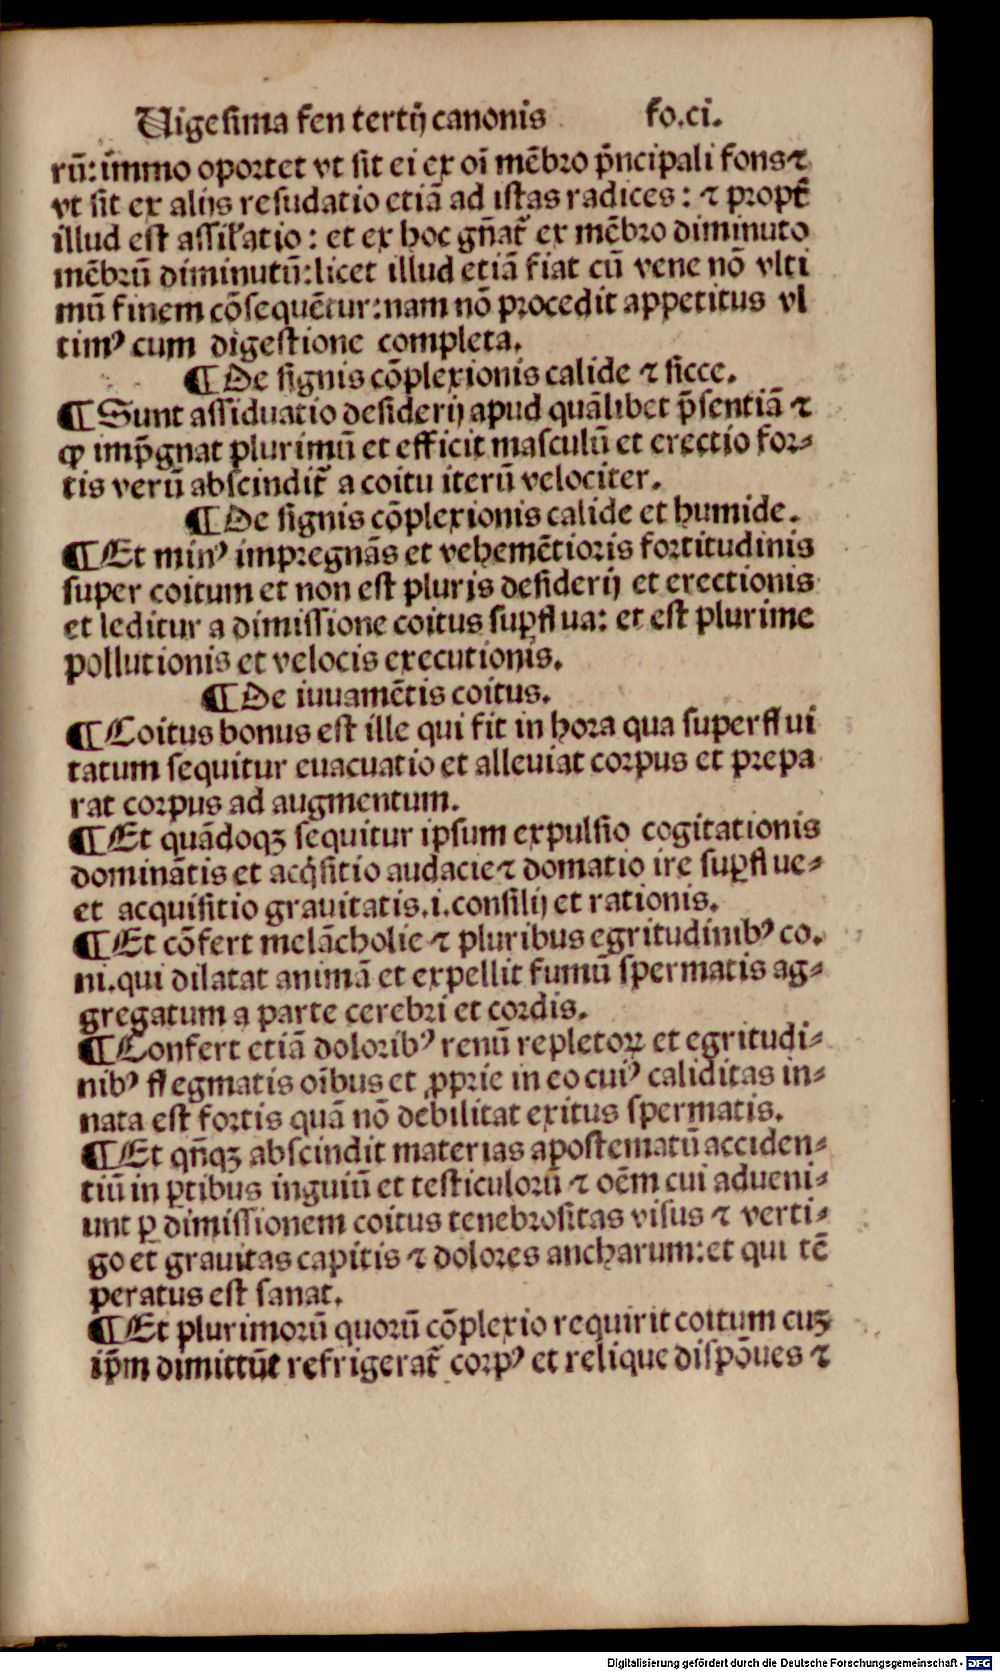 Uigesima fen tertij canonis fo.ci.
rū: īmmo oportet vt sit ei ex oī mēbro p̄ncipali fons ⁊
vt sit ex alijs resudatio etiā ad istas radices: ⁊ propt̄
illud est assil'atio: et ex hoc gn̄at̄ ex mēbro diminuto
mēbrū diminutū: licet illud etiā fiat cū vene nō vlti
mū finem cōsequētur: nam nō procedit appetitus vl
timꝰ cum digestione completa.
¶ De signis cōplexionis calide ⁊ sicce.
¶ Sunt assiduatio desiderij apud quālibet p̄sentiā ⁊
ꝙ imp̄gnat plurimū et efficit masculū et erectio for⸗
tis verū abscindit̄ a coitu iterū velociter.
¶ De signis cōplexionis calide et humide.
¶ Et minꝰ impregnās et vehemētioris fortitudinis
super coitum et non est pluris desiderij et erectionis
et leditur a dimissione coitus suꝑflua: et est plurime
pollutionis et velocis executionis.
¶ De iuuamētis coitus.
¶ Coitus bonus est ille qui fit in hora qua superflui
tatum sequitur euacuatio et alleuiat corpus et prepa
rat corpus ad augmentum.
¶ Et quādoqꝫ sequitur ipsum expulsio cogitationis
dominātis et acq̇sitio audacie ⁊ domatio ire suꝑflue⸗
et acquisitio grauitatis.i.consilij et rationis.
¶ Et cōfert melācholie ⁊ pluribus egritudinibꝰ co.
ni.qui dilatat animā et expellit fumū spermatis ag⸗
gregatum a parte cerebri et cordis.
¶ Confert etiā doloribꝰ renū repletoꝝ et egritudi⸗
nibꝰ flegmatis oībus et ꝓprie in eo cuiꝰ caliditas in⸗
nata est fortis quā nō debilitat exitus spermatis.
¶ Et qn̄qꝫ abscindit materias apostematū acciden⸗
tiū in ꝑtibus inguiū et testiculorū ⁊ oēm cui adueni⸗
unt ꝑ dimissionem coitus tenebrositas visus ⁊ verti⸗
go et grauitas capitis ⁊ dolores ancharum: et qui tē
peratus est sanat.
¶ Et plurimorū quorū cōplexio requirit coitum cuꝫ
ip̄m dimittūt refrigerat̄ corpꝰ et relique dispōnes ⁊
Digitalisierung gefördert durch die Deutsche Forschungsgemeinschaft - DFG